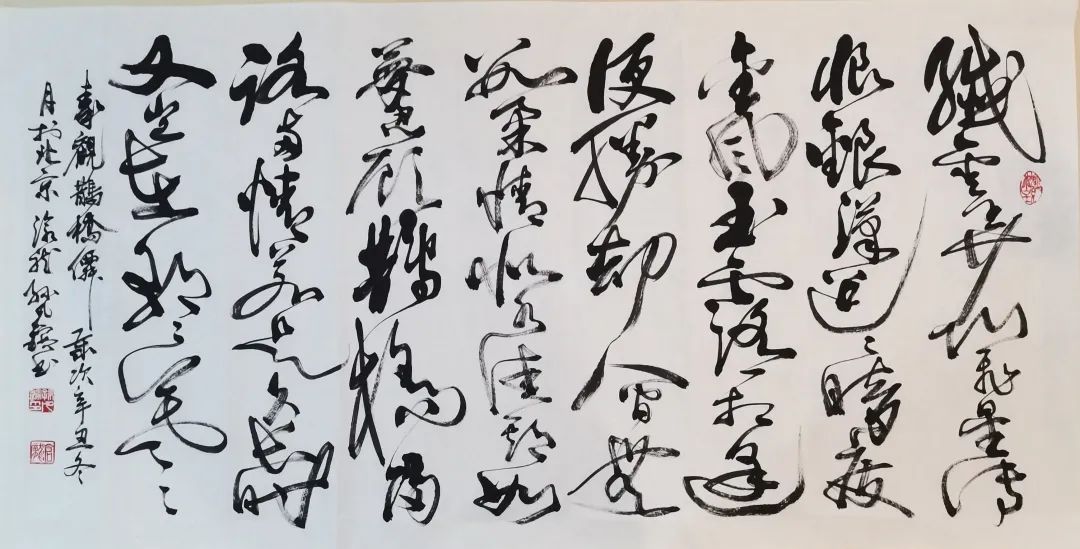 纖雲弄巧飛星傳
恨銀漢迢〻暗度
金風玉露一相逢
便勝却人間無
數柔情似水佳期如
夢忍顧鵲橋歸
路兩情若是久長時
又豈在朝〻暮〻
秦觀鵲橋僊 歲次辛丑冬
月於北京